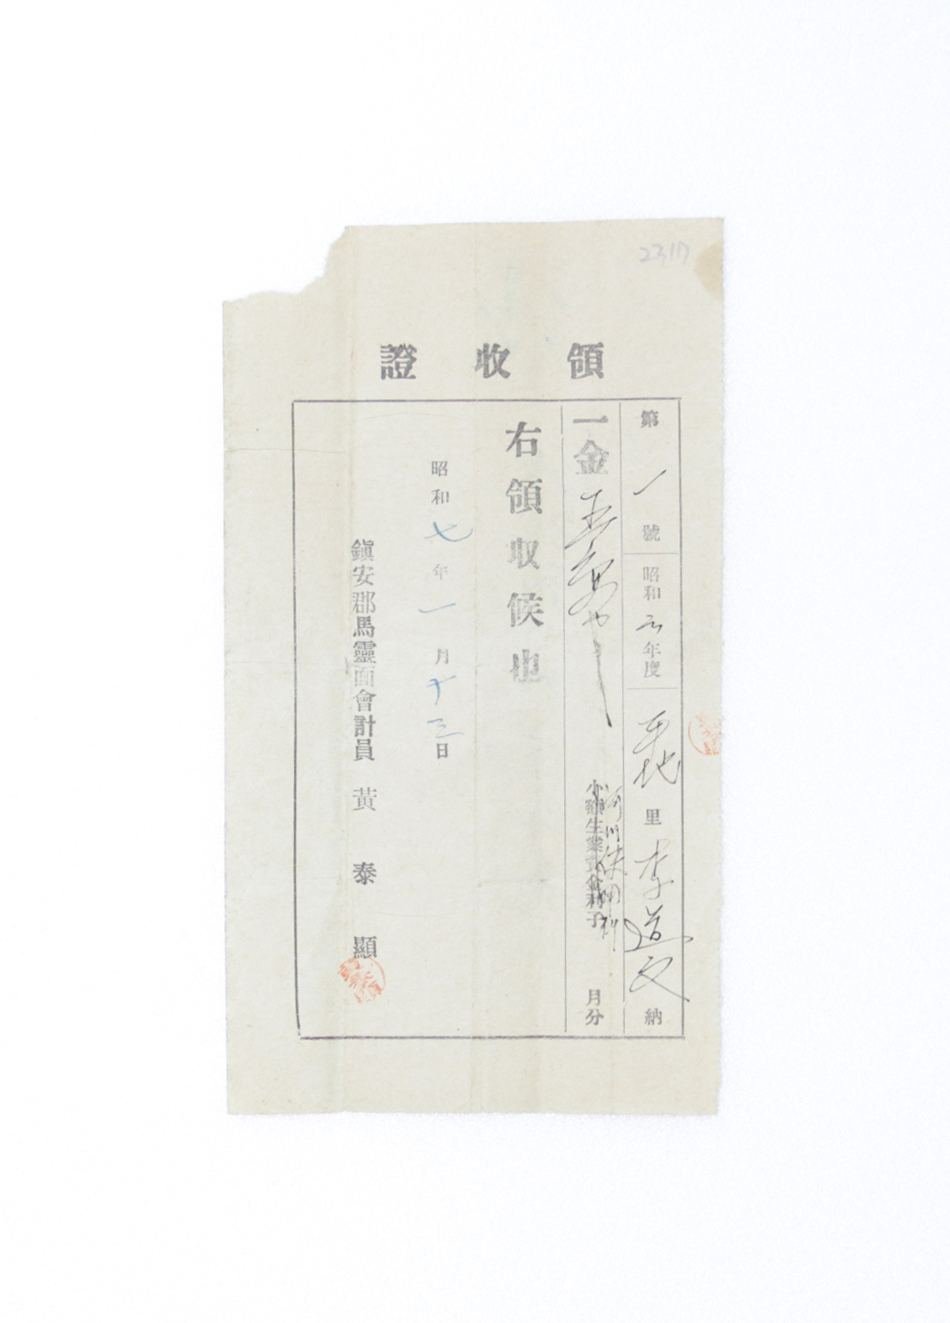 2317
領收證
第一號 昭和六年度 平地里 李道文 納
一金五
河川使用料
小額生業資金利子 月分
右領收候也
昭和七年一月十三日
鎭安郡馬靈面會計員 黃泰顯